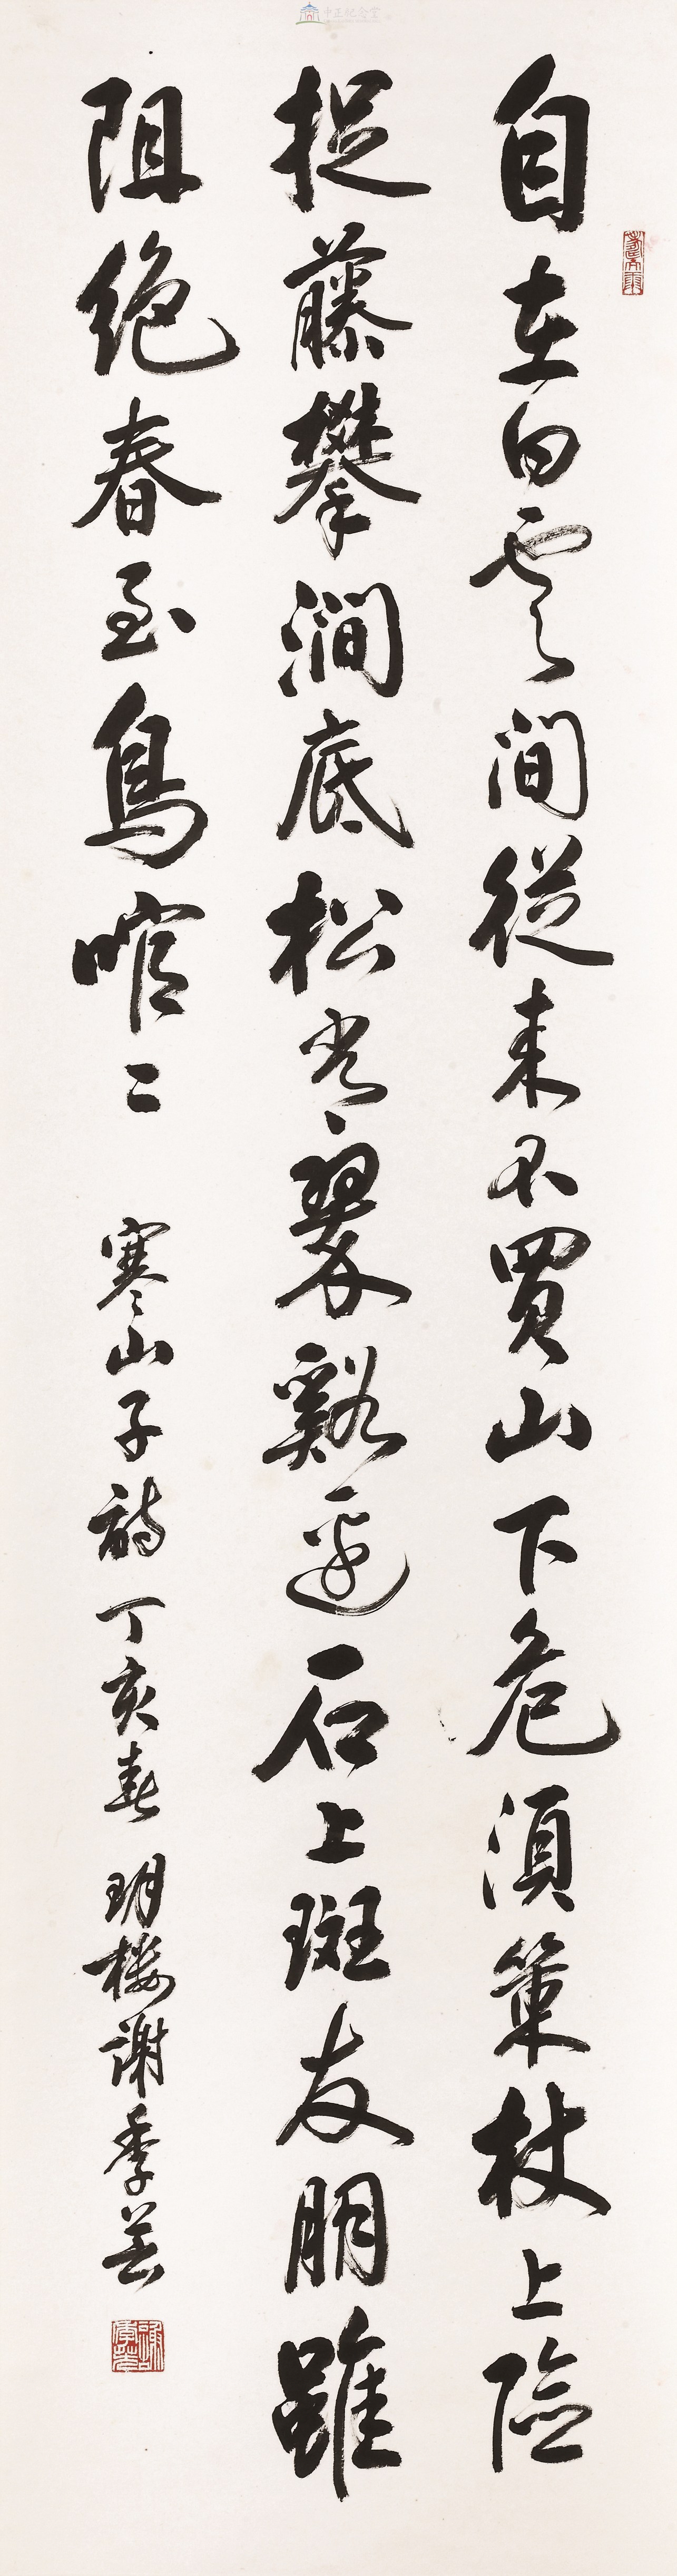 中正紀念堂
自在白雲間從來不買山下危須策杖上險
捉藤攀澗底松常翠谿邊石上斑友朋雖
阻絕春至鳥二 寒山子詩 丁亥春 玥樓謝季芸
謝季芸